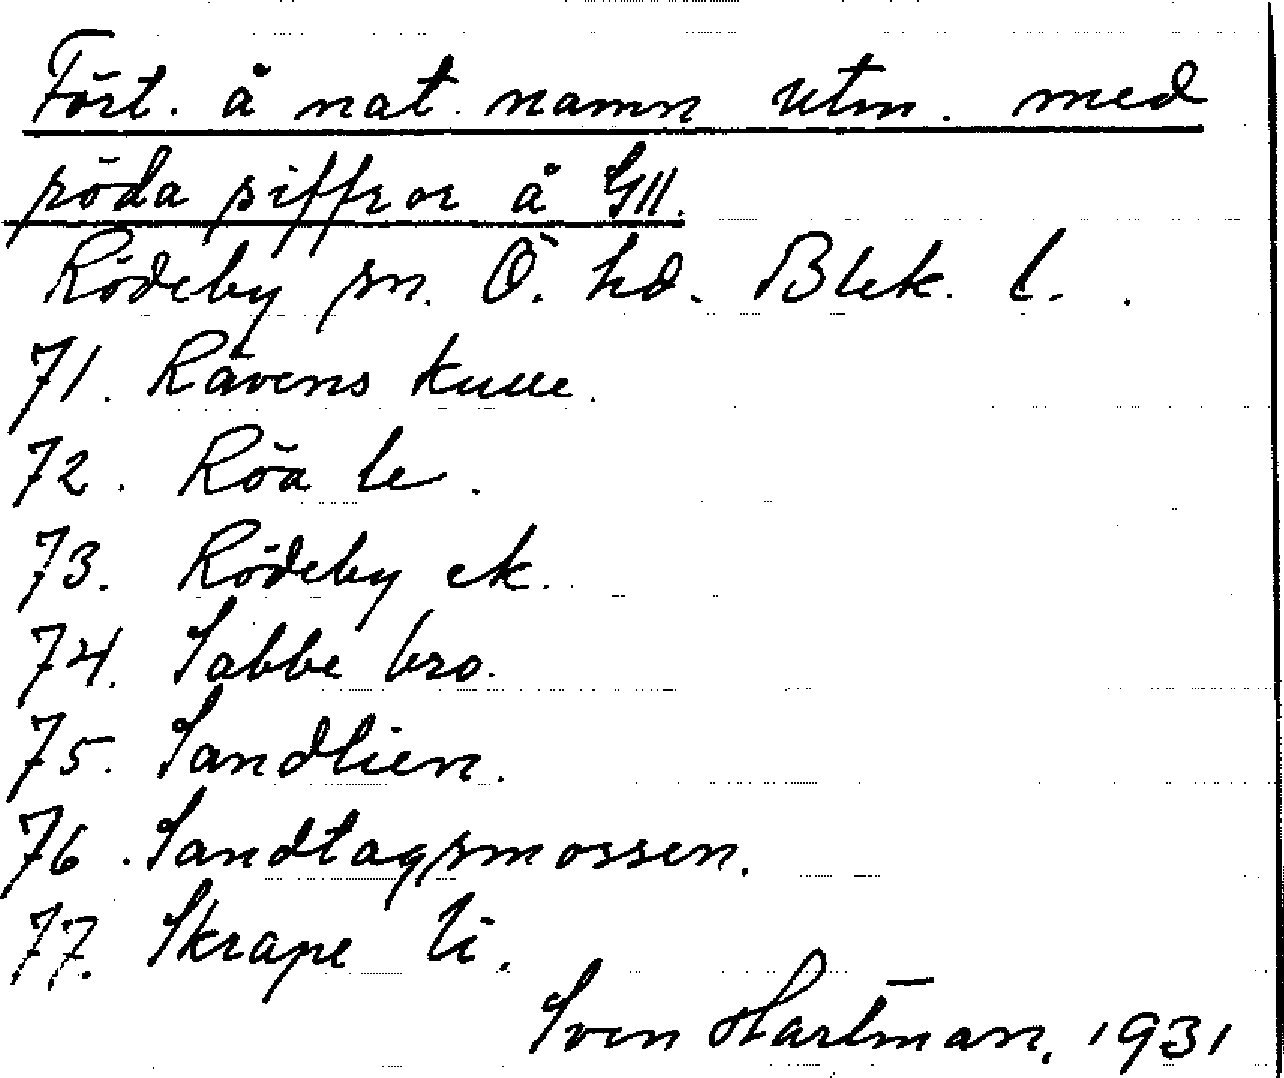 Fört. å nat. namn utm. med
röda siffror å GII.
Rödeby sn. Ö. hd. Blek. l.
71. Rävens kulle.
72. Röa le.
73. Rödeby ek.
74. Sabbe bro.
75. Sandlien.
76. Sandtagsmossen.
77. Skrape li.
Sven Hartman, 1931